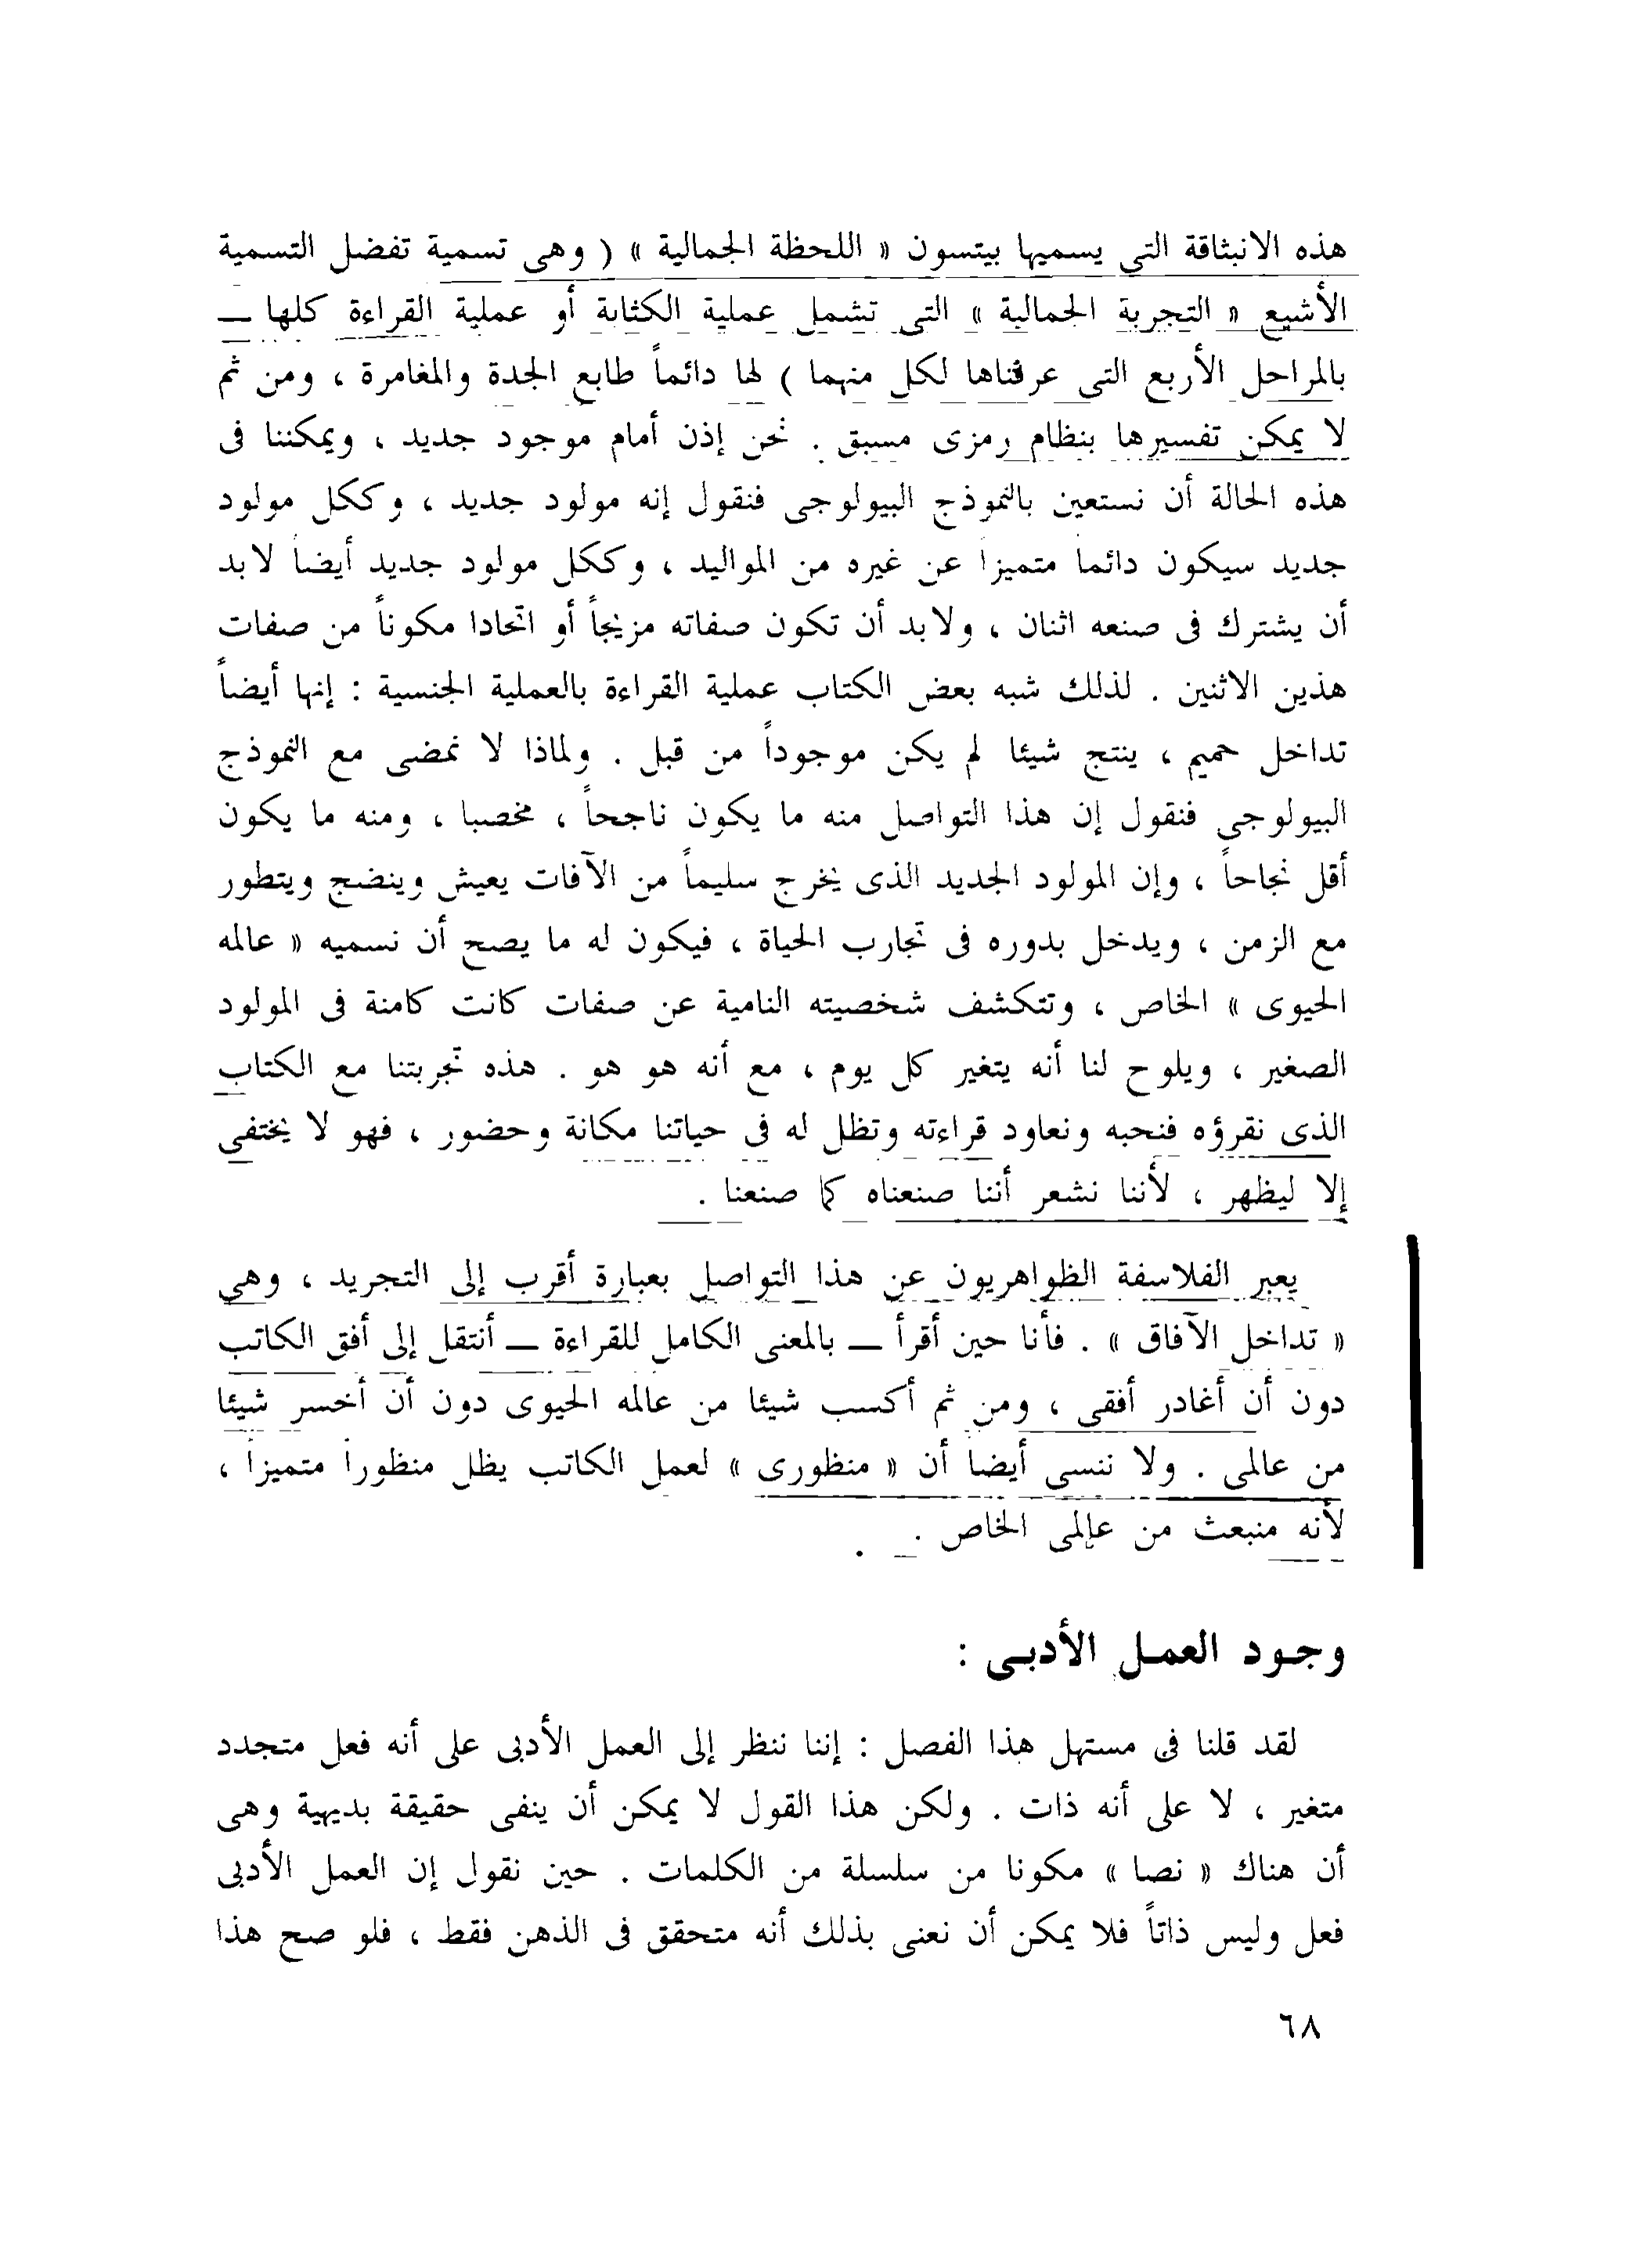 هذه الانبثاقة التي يسميها بيتسون « اللحظة الجمالية » ( وهى تسمية تفضل التسمية
الأشيع « التجربة الجمالية » التى تشمل عملية الكتابة أو عملية القراءة كلها —
بالمراحل الأربع التى عرفناها لكل منهما ) لها دائماً طابع الجدة والمغامرة ، ومن ثم
لا يمكن تفسيرها بنظام رمزى مسبق . نحن إذن أمام موجود جديد ، ويمكننا فى
هذه الحالة أن نستعين بالنموذج البيولوجى فنقول إنه مولود جديد ، وككل مولود
جديد سيكون دائما متميزا عن غيره من المواليد ، وككل مولود جديد أيضا لابد
أن يشترك فى صنعه اثنان ، ولابد أن تكون صفاته مزيجاً أو اتحادا مكوناً من صفات
هذين الاثنين . لذلك شبه بعض الكتاب عملية القراءة بالعملية الجنسية : إنها أيضاً
تداخل حميم ، ينتج شيئا لم يكن موجوداً من قبل . ولماذا لا نمضى مع النموذج
البيولوجى فنقول إن هذا التواصل منه ما يكون ناجحاً ، مخصبا ، ومنه ما يكون
أقل نجاحاً ، وإن المولود الجديد الذى يخرج سليماً من الآفات يعيش وينضج ويتطور
مع الزمن ، ويدخل بدوره فى تجارب الحياة ، فيكون له ما يصح أن نسميه « عالمه
الحيوى » الخاص ، وتتكشف شخصيته النامية عن صفات كانت كامنة فى المولود
الصغير ، ويلوح لنا أنه يتغير كل يوم ، مع أنه هو هو . هذه تجربتنا مع الكتاب
الذى نقرؤه فنحبه ونعاود قراءته وتظل له فى حياتنا مكانة وحضور ، فهو لا يختفى
إلا ليظهر ، لأننا نشعر أننا صنعناه كما صنعنا .
يعبر الفلاسفة الظواهريون عن هذا التواصل بعبارة أقرب إلى التجريد ، وهى
« تداخل الآفاق » . فأنا حين أقرأ — بالمعنى الكامل للقراءة — أنتقل إلى أفق الكاتب
دون أن أغادر أفقى ، ومن ثم أكسب شيئا من عالمه الحيوى دون أن أخسر شيئا
من عالمى . ولا ننسى أيضا أن « منظورى » لعمل الكاتب يظل منظورا متميزا ،
لأنه منبعث من عالمى الخاص .
وجود العمل الأدبى :
لقد قلنا فى مستهل هذا الفصل : إننا ننظر إلى العمل الأدبى على أنه فعل متجدد
متغير ، لا على أنه ذات . ولكن هذا القول لا يمكن أن ينفى حقيقة بديهية وهى
أن هناك « نصا » مكونا من سلسلة من الكلمات . حين نقول إن العمل الأدبى
فعل وليس ذاتاً فلا يمكن أن نعنى بذلك أنه متحقق فى الذهن فقط ، فلو صح هذا
٦٨